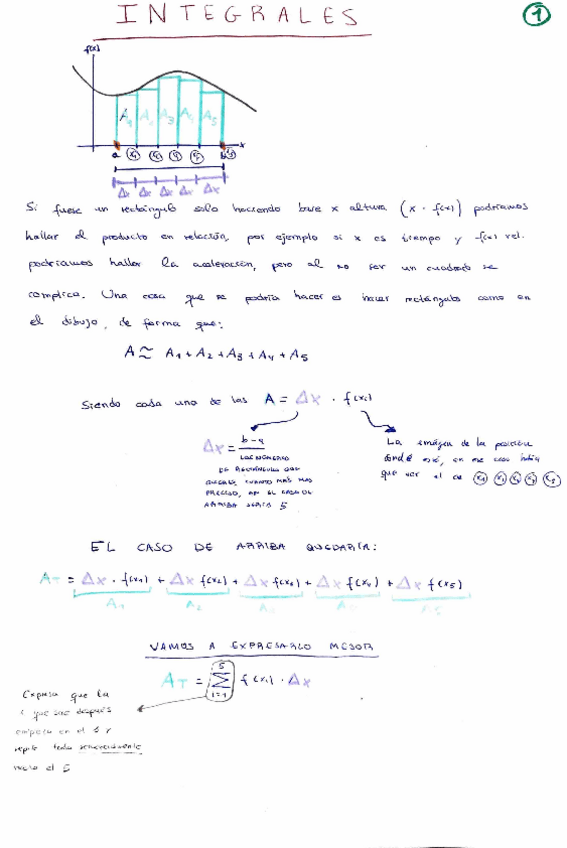 INTEGRALES
1
f(x)
A1 A2 A3 A4 A5
a x1 x2 x3 x4 x
Δx Δx Δx Δx Δx
Si fuese un rectángulo solo haciendo base x altura (x · f(x)) podríamos
hallar el producto en relación, por ejemplo si x es tiempo y f(x) vel.
podríamos hallar la aceleración, pero al no ser un cuadrado se
complica. Una cosa que se podría hacer es hacer rectángulos como en
el dibujo, de forma que:
A ≃ A1 + A2 + A3 + A4 + A5
Siendo cada una de las A = Δx · f(xi)
Δx = b-a
LOS NÚMEROS
DE RECTÁNGULOS QUE
QUERAS, CUANTO MÁS MÁS
PRECISO, EN EL CASO DE
ARRIBA SERÍA 5
La imágen de la posición
donde esté, en ese caso
que ser el de x1 x2 x3 x4 x5
EL CASO DE ARRIBA QUEDARÍA:
AT = Δx · f(x1) + Δx f(x2) + Δx f(x3) + Δx f(x4) + Δx f(x5)
A1 A2 A3 A4 A5
VAMOS A EXPRESARLO MEJOR
AT = 5 Σ i=1 f(xi) · Δx
Expresa que la
i que sale después
empieza en el 1 y
repite todo
hasta el 5